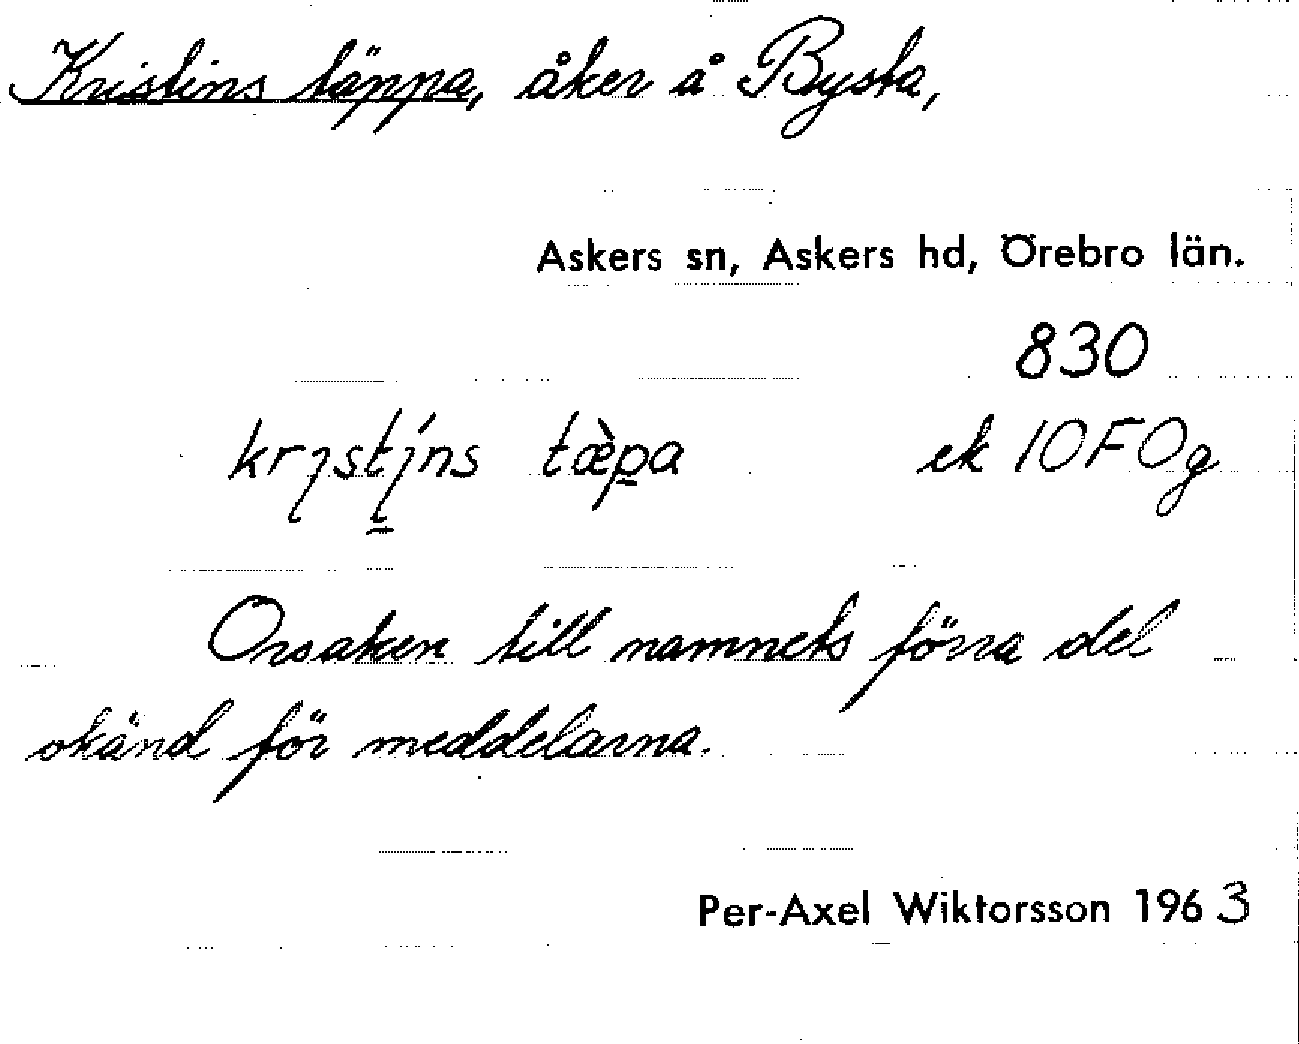 Kristins täppa, åker å Bysta,
Askers sn, Askers hd, Örebro län.
830
krıstı́ns tæ̀pa ek 10F0g
Orsaken till namnets förra del
okänd för meddelarna.
Per-Axel Wiktorsson 1963